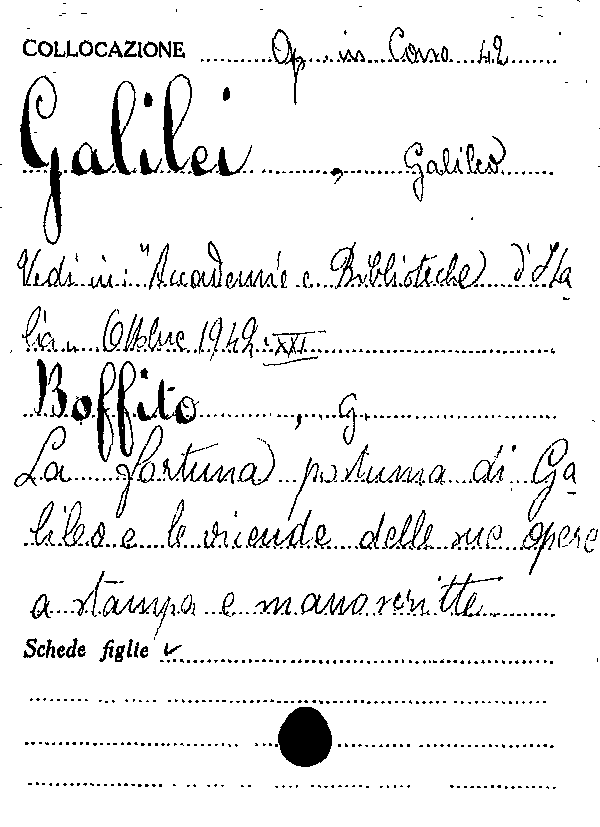 COLLOCAZIONE Op. in Corso 42
Galilei, Galileo
Vedi in: "Accademie e Biblioteche d'Ita
lia„ Ottobre 1942. XXI
Boffito, G.
La fortuna postuma di Ga
lileo e le vicende delle sue opere
a stampa e manoscritte
Schede figlie ✓